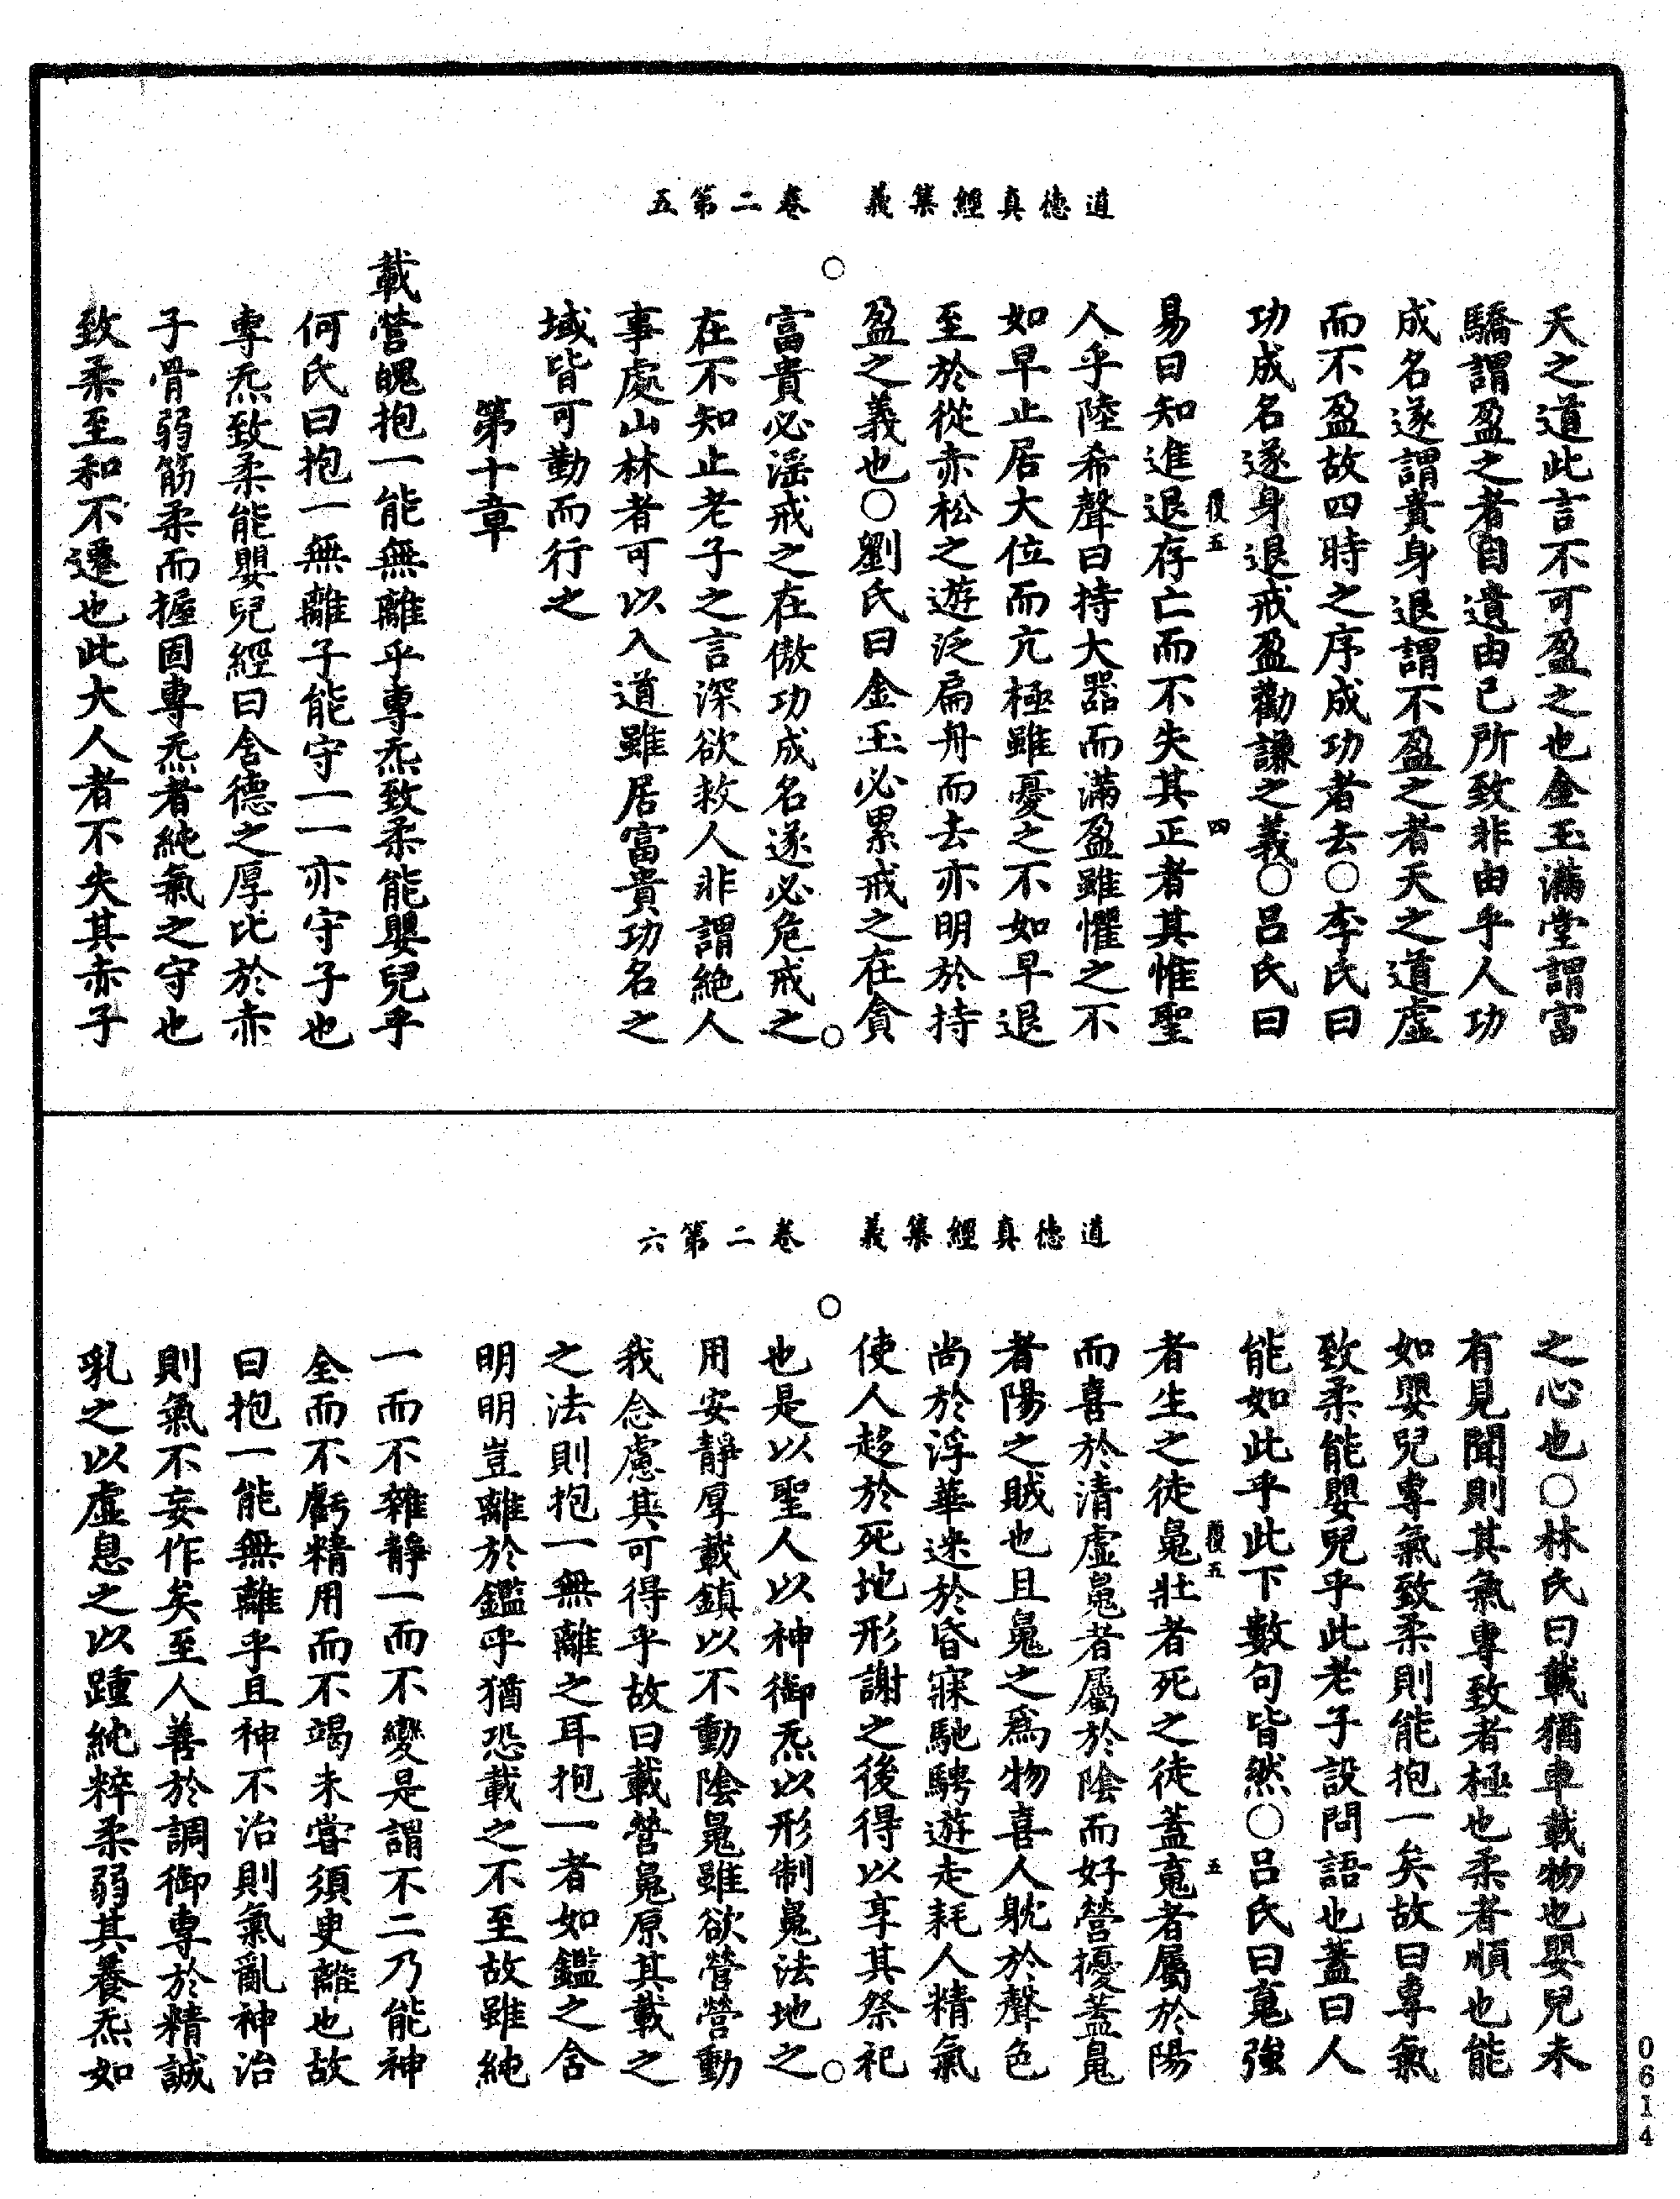 道德真經集義　卷二第五
天之道此言不可盈之也金玉滿堂謂富
驕謂盈之者自遺由己所致非由乎人功
成名遂謂貴身退謂不盈之者天之道虛
而不盈故四時之序成功者去○李氏曰
功成名遂身退戒盈勸謙之義○呂氏曰
覆五　四
易曰知進退存亡而不失其正者其惟聖
人乎陸希聲曰持大器而滿盈雖懼之不
如早止居大位而亢極雖憂之不如早退
至於從赤松之遊泛扁舟而去亦明於持
盈之義也○劉氏曰金玉必累戒之在貪
富貴必淫戒之在傲功成名遂必危戒之
在不知止老子之言深欲救人非謂絶人
事處山林者可以入道雖居富貴功名之
域皆可勤而行之
第十章
載營魄抱一能無離乎專炁致柔能嬰兒乎
何氏曰抱一無離子能守一一亦守子也
專炁致柔能嬰兒經曰含德之厚比於赤
子骨弱筋柔而握固專炁者純氣之守也
致柔至和不遷也此大人者不失其赤子
道德真經集義　卷二第六
之心也○林氏曰載猶車載物也嬰兒未
有見聞則其氣專致者極也柔者順也能
如嬰兒專氣致柔則能抱一矣故曰專氣
致柔能嬰兒乎此老子設問語也蓋曰人
能如此乎此下數句皆然○呂氏曰䰟強
覆五　五
者生之徒䰟壯者死之徒蓋䰟者屬於陽
而喜於清虛魄者屬於陰而好營擾蓋魄
者陽之賊也且魄之爲物喜人躭於聲色
尚於浮華迷於昏寐馳騁遊走耗人精氣
使人趍於死地形謝之後得以享其祭祀
也是以聖人以神御炁以形制魄法地之
用安靜厚載鎮以不動陰魄雖欲營營動
我念慮其可得乎故曰載營魄原其載之
之法則抱一無離之耳抱一者如鑑之含
明明豈離於鑑乎猶恐載之不至故雖純
一而不雜靜一而不變是謂不二乃能神
全而不虧精用而不竭未嘗須臾離也故
曰抱一能無離乎且神不治則氣亂神治
則氣不妄作矣至人善於調御專於精誠
乳之以虛息之以踵純粹柔弱其養炁如
0614